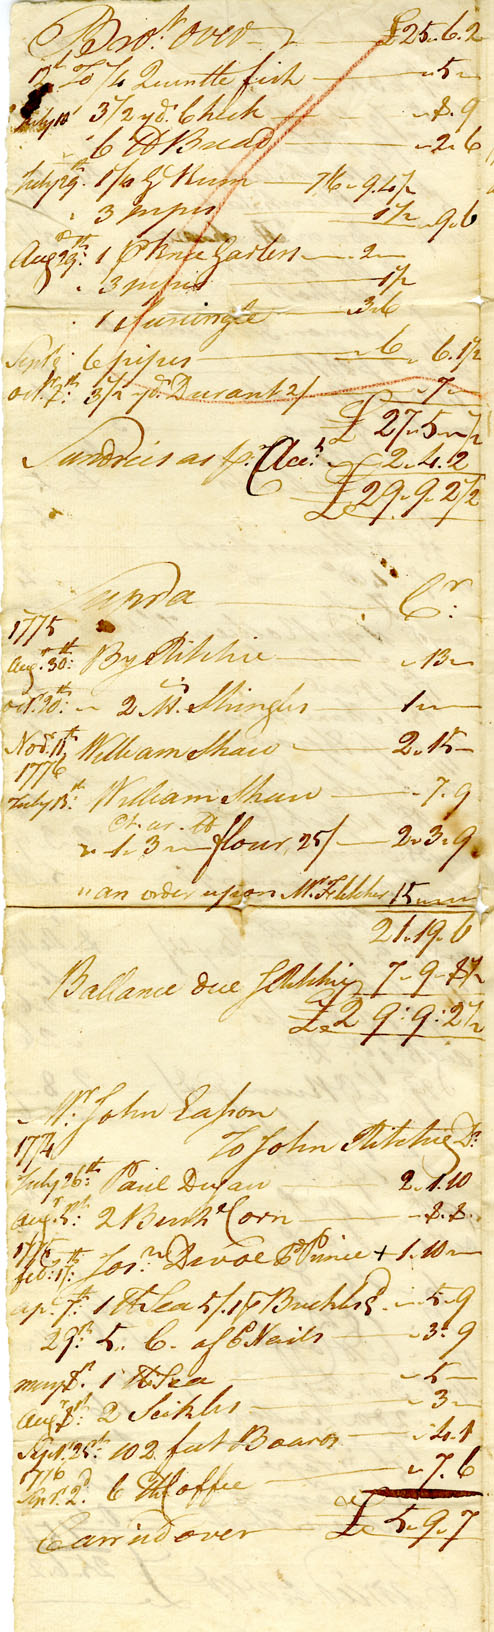 Bro.t over £25.6.2
1/4 Quintle fish 5
July 10 3 1/2 yds Check 8.9
6 lb Bread 2.6
July 29th 1/2 G Rum 7/6 9.4 1/2
3 pipes 1 1/2 9.6
Augt 29th 1 pr Knee Garters 2
3 pipes 1 1/2
1 Surcingle 3.6
6 pipes 6 6.1 1/2
Oct. 7th 3 1/2 yds Durant 2/ 7
£ 27.5 1/2
Sundries as pr Acct £ 2.4.2
£ 29.9.2 1/2
Supra Cr.
1775
Augt 30th By Ritchie 13
Oct. 20th 2 M Shingles 1
Novr 11th William Shaw 2.15
1776
July 13th William Shaw 7.9
Ct. qr. lb
1. 3 flour, 25/ 2.3.9
" an order upon Mr Fletcher 15
21.19.6
Ballance due J Ritchie 7.9.8 1/2
£29:9:2 1/2
Mr John Eason
1774 To John Ritchie Dr.
July 26th Paul Dugau 2.1.10
Augt 2 Bushs Corn 8.8
1775
feb. Josh Devoe pr Prince + 1.10
ap. 7th 1 lb Tea 5/ 1 pr Buckles 5.9
29th 5 C. of Nails 3.9
may 1 lb Tea 5
Augt 2 Sickles 3
Sept. 25th 102 feet Boards 4.1
1776
2d. 6 lb Coffee 7.6
Carried over £ 5.9.7